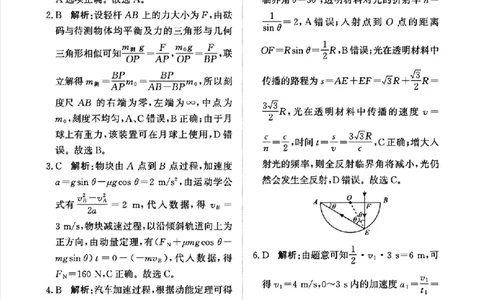 2.B 解析:设轻杆 AB 上的力大小为 F,由砝
码与待测物体均平衡及力的三角形与几何
三角形相似可知 m测g/AP = F/OP, m₀g/BP = F/OP,联
立解得 m测 = BP/AP m₀ = BP/(AB-BP) m₀,所以刻
度尺 AB 的右端为零,左端为∞,中点为
m₀,刻度不均匀,A、C 错误,B 正确;由于月
球上有重力,该装置可在月球上使用,D 错
误。故选 B。
3.C 解析:物块由 A 点到 B 点过程,加速度
a=gsin θ-μgcos θ=2 m/s²,由运动学公
式有 (v_B²-v_A²)/2a = 2 m,代入数据,得 v_B =
3 m/s,物块减速过程,以沿倾斜轨道向上为
正方向,由动量定理,有(F_N+μmgcos θ-
mgsin θ)t=0-(-mv_B),代入数据,得
F_N=160 N,C 正确。故选 C。
4.B 解析:汽车加速过程,根据动能定理可得
1/sin θ=2,A 错误;入射点到 O 点的距离
OF=Rsin θ=1/2 R,B 错误;光在透明材料中
传播的路程为 s=AE+EF=√3R+√3/2 R=
3√3/2 R,光在透明材料中传播的速度 v=
c/n=c/2,时间 t=s/v=3√3R/c,C 正确;增大入
射光的频率,则全反射临界角将减小,光仍
然会发生全反射,D 错误。故选 C。
A O B
θ F
θ
E
6.D 解析:由题意可知 1/2·v₁·3 s=6 m,可
得 v₁=4 m/s,0~3 s 内的加速度 a₁=v₁/t₁=